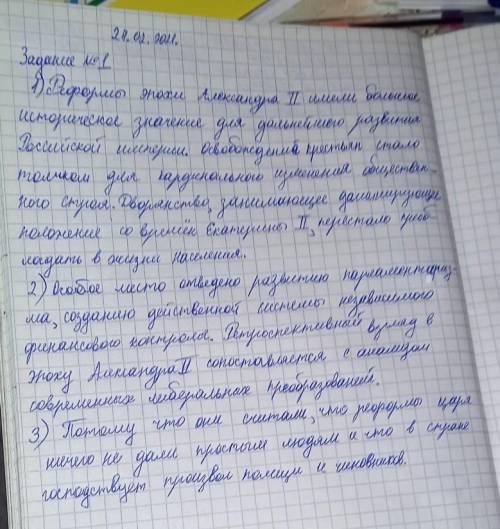 24.02.2021.
Задание №1
1) Реформы эпохи Александра II имели большое
историческое значение для дальнейшего развития
Российской империи. Освобождений крестьян стало
толчком для кардинального изменения обществен-
ного строя. Дворянство, занимающее доминирующее
положение со времён Екатерины II, перестало преоб-
ладать в жизни населения.
2) Особое место отведено развитию парламентариз-
ма, созданию действенной системы независимого
финансового контроля. Ретроспективный взгляд в
эпоху Александра II сопоставляется с анализом
современных либеральных преобразований.
3) Потому что они считали, что реформы царя
ничего не дали простым людям и что в стране
господствует произвол помещи и чиновников.